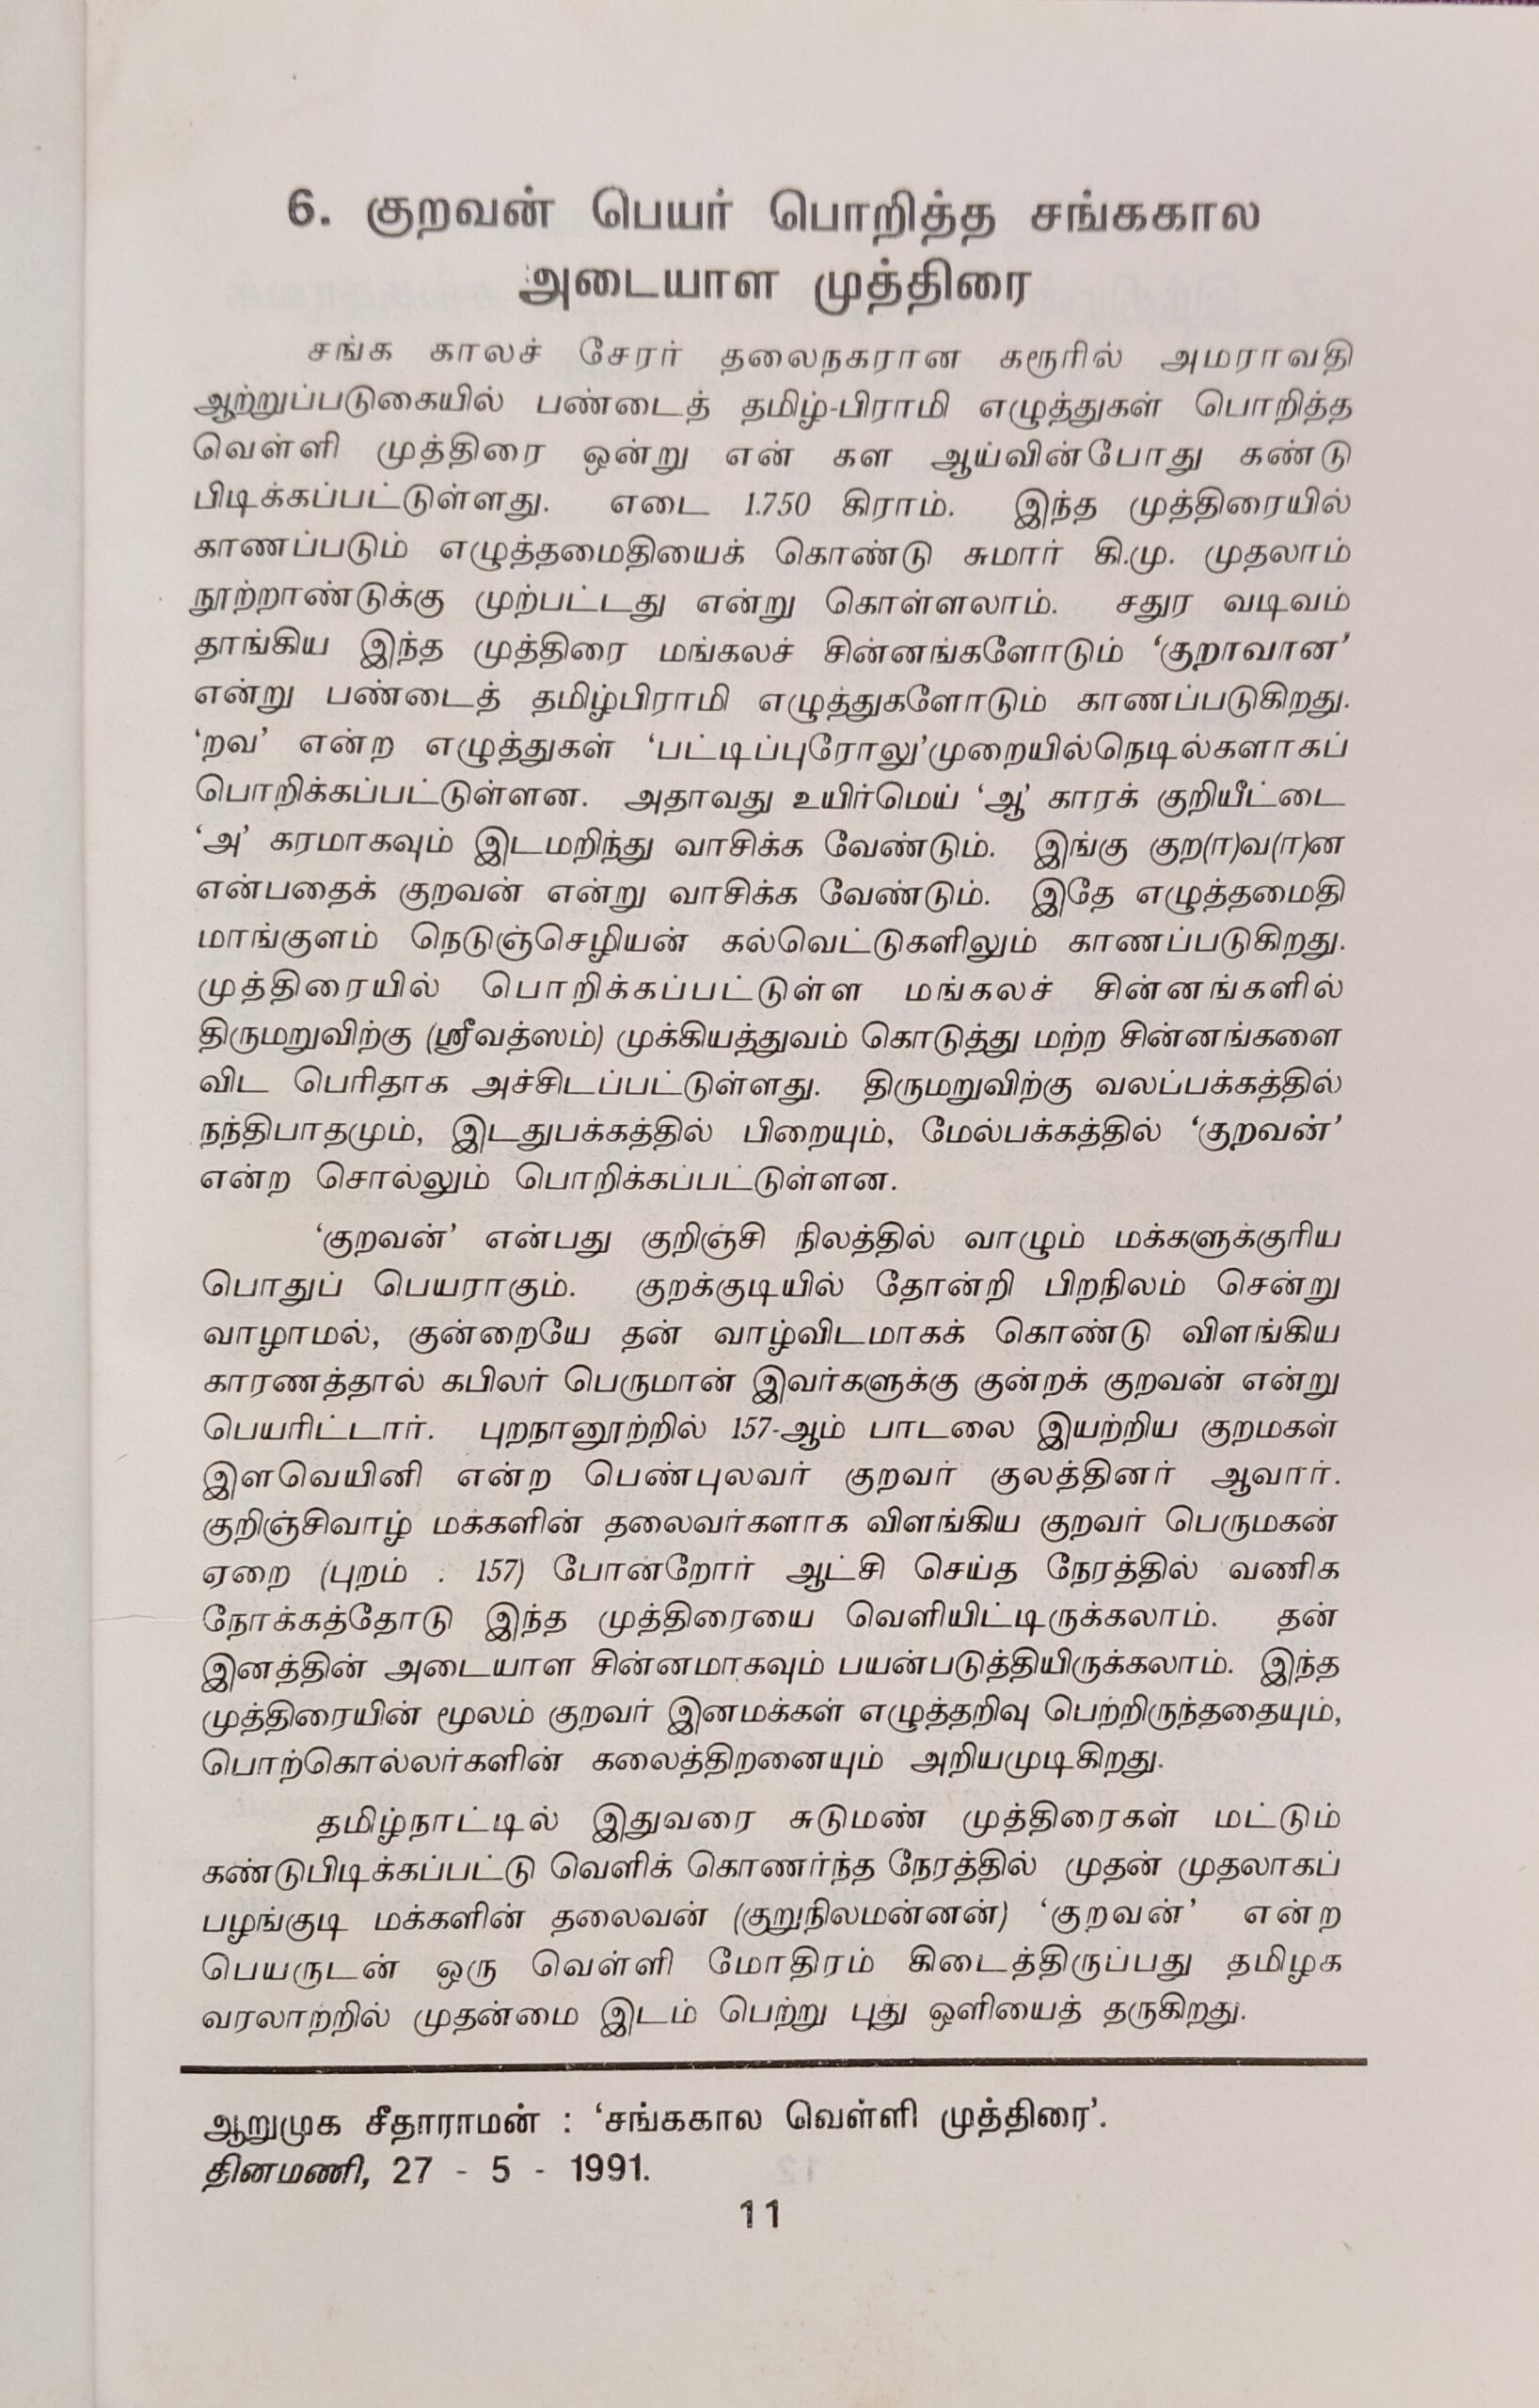 6. குறவன் பெயர் பொறித்த சங்ககால
அடையாள முத்திரை
சங்க காலச் சேரர் தலைநகரான கரூரில் அமராவதி
ஆற்றுப்படுகையில் பண்டைத் தமிழ்-பிராமி எழுத்துகள் பொறித்த
வெள்ளி முத்திரை ஒன்று என் கள ஆய்வின்போது கண்டு
பிடிக்கப்பட்டுள்ளது. எடை 1.750 கிராம். இந்த முத்திரையில்
காணப்படும் எழுத்தமைதியைக் கொண்டு சுமார் கி.மு. முதலாம்
நூற்றாண்டுக்கு முற்பட்டது என்று கொள்ளலாம். சதுர வடிவம்
தாங்கிய இந்த முத்திரை மங்கலச் சின்னங்களோடும் ‘குறாவான’
என்று பண்டைத் தமிழ்பிராமி எழுத்துகளோடும் காணப்படுகிறது.
‘றவ’ என்ற எழுத்துகள் ‘பட்டிப்புரோலு’முறையில்நெடில்களாகப்
பொறிக்கப்பட்டுள்ளன. அதாவது உயிர்மெய் ‘ஆ’ காரக் குறியீட்டை
‘அ’ கரமாகவும் இடமறிந்து வாசிக்க வேண்டும். இங்கு குற(ா)வ(ா)ன
என்பதைக் குறவன் என்று வாசிக்க வேண்டும். இதே எழுத்தமைதி
மாங்குளம் நெடுஞ்செழியன் கல்வெட்டுகளிலும் காணப்படுகிறது.
முத்திரையில் பொறிக்கப்பட்டுள்ள மங்கலச் சின்னங்களில்
திருமறுவிற்கு (ஸ்ரீவத்ஸம்) முக்கியத்துவம் கொடுத்து மற்ற சின்னங்களை
விட பெரிதாக அச்சிடப்பட்டுள்ளது. திருமறுவிற்கு வலப்பக்கத்தில்
நந்திபாதமும், இடதுபக்கத்தில் பிறையும், மேல்பக்கத்தில் ‘குறவன்’
என்ற சொல்லும் பொறிக்கப்பட்டுள்ளன.
‘குறவன்’ என்பது குறிஞ்சி நிலத்தில் வாழும் மக்களுக்குரிய
பொதுப் பெயராகும். குறக்குடியில் தோன்றி பிறநிலம் சென்று
வாழாமல், குன்றையே தன் வாழ்விடமாகக் கொண்டு விளங்கிய
காரணத்தால் கபிலர் பெருமான் இவர்களுக்கு குன்றக் குறவன் என்று
பெயரிட்டார். புறநானூற்றில் 157-ஆம் பாடலை இயற்றிய குறமகள்
இளவெயினி என்ற பெண்புலவர் குறவர் குலத்தினர் ஆவார்.
குறிஞ்சிவாழ் மக்களின் தலைவர்களாக விளங்கிய குறவர் பெருமகன்
ஏறை (புறம் : 157) போன்றோர் ஆட்சி செய்த நேரத்தில் வணிக
நோக்கத்தோடு இந்த முத்திரையை வெளியிட்டிருக்கலாம். தன்
இனத்தின் அடையாள சின்னமாகவும் பயன்படுத்தியிருக்கலாம். இந்த
முத்திரையின் மூலம் குறவர் இனமக்கள் எழுத்தறிவு பெற்றிருந்ததையும்,
பொற்கொல்லர்களின் கலைத்திறனையும் அறியமுடிகிறது.
தமிழ்நாட்டில் இதுவரை சுடுமண் முத்திரைகள் மட்டும்
கண்டுபிடிக்கப்பட்டு வெளிக் கொணர்ந்த நேரத்தில் முதன் முதலாகப்
பழங்குடி மக்களின் தலைவன் (குறுநிலமன்னன்) ‘குறவன்’ என்ற
பெயருடன் ஒரு வெள்ளி மோதிரம் கிடைத்திருப்பது தமிழக
வரலாற்றில் முதன்மை இடம் பெற்று புது ஒளியைத் தருகிறது.
ஆறுமுக சீதாராமன் : ‘சங்ககால வெள்ளி முத்திரை’.
தினமணி, 27 - 5 - 1991.
11